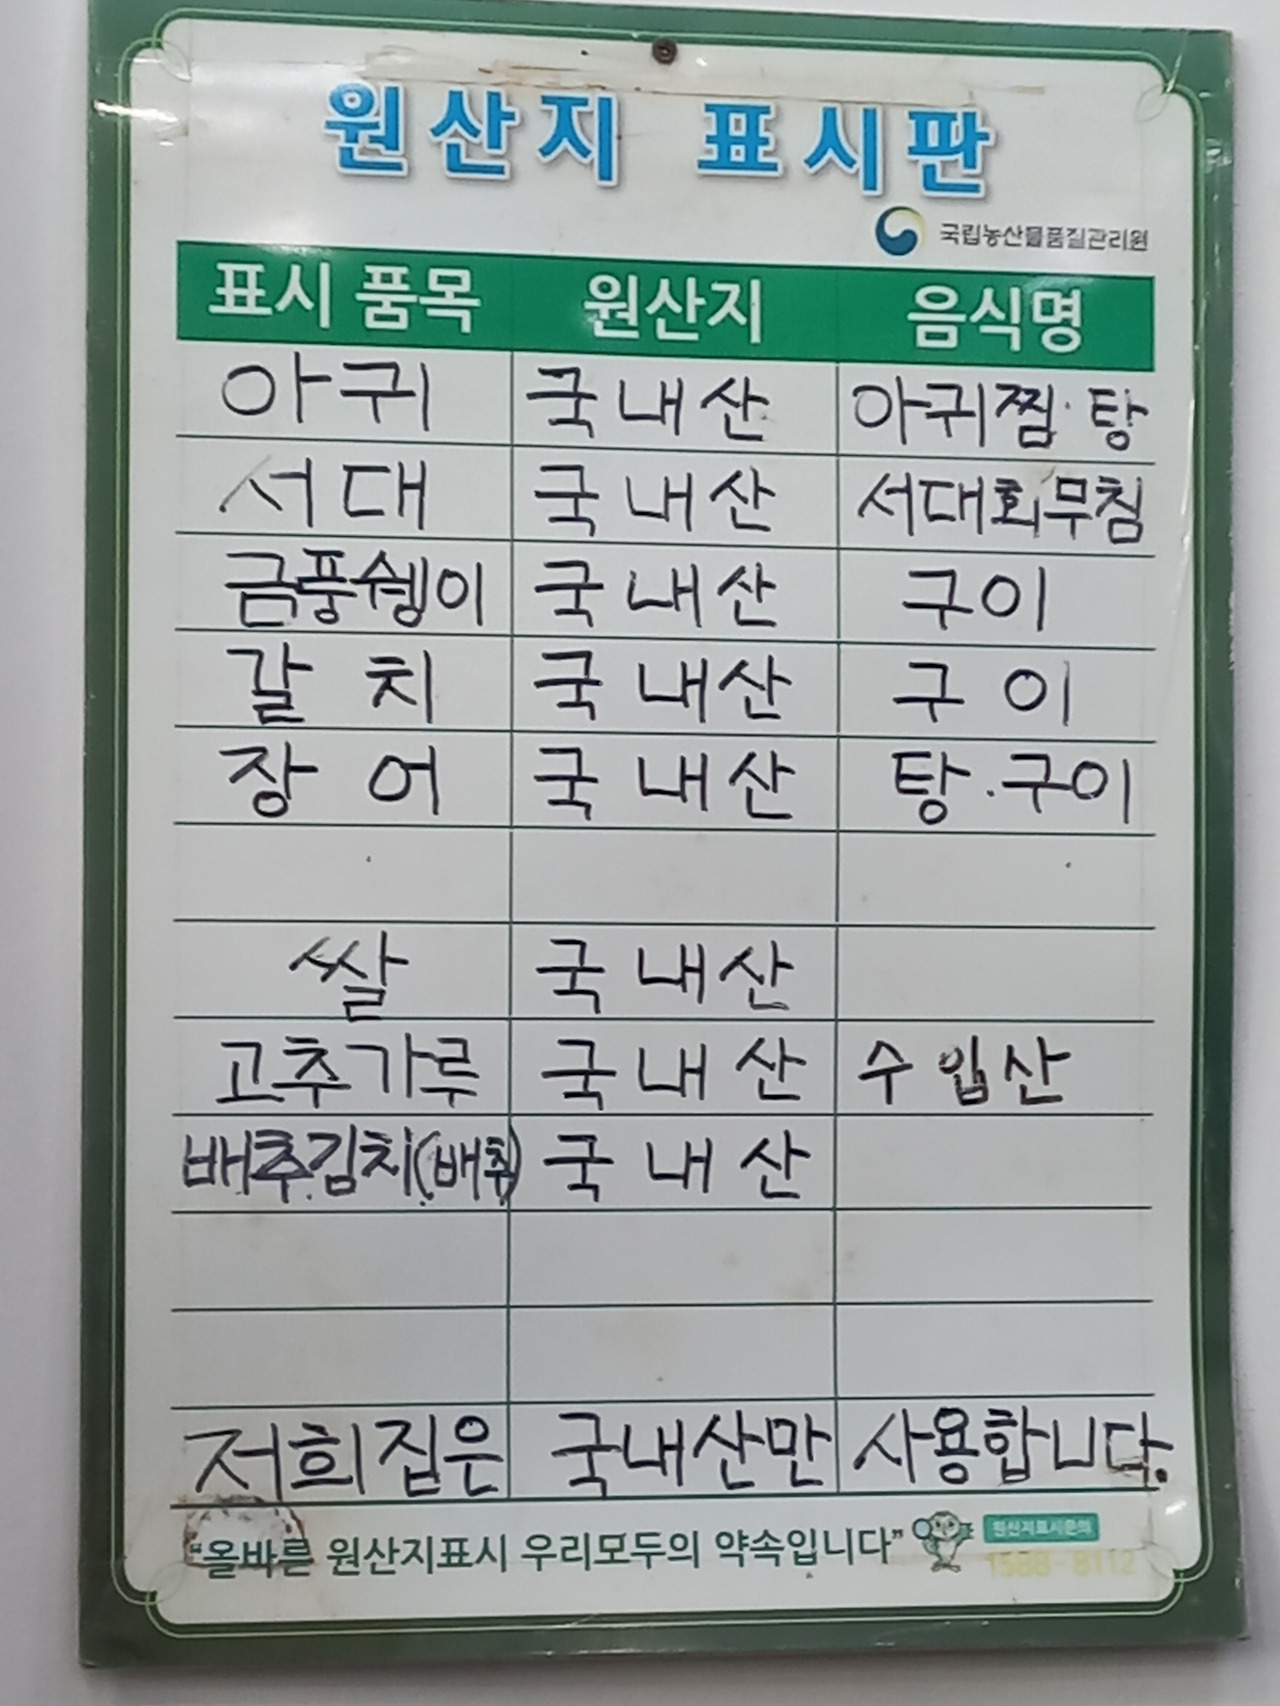 원산지 표시판
국립농산물품질관리원
표시 품목 원산지 음식명
아귀 국내산 아귀찜·탕
서대 국내산 서대회무침
금풍쉥이 국내산 구이
갈치 국내산 구이
장어 국내산 탕·구이
쌀 국내산
고추가루 국내산 수입산
배추김치(배추) 국내산
저희집은 국내산만 사용합니다.
"올바른 원산지표시 우리모두의 약속입니다"
원산지표시문의
1588-8112